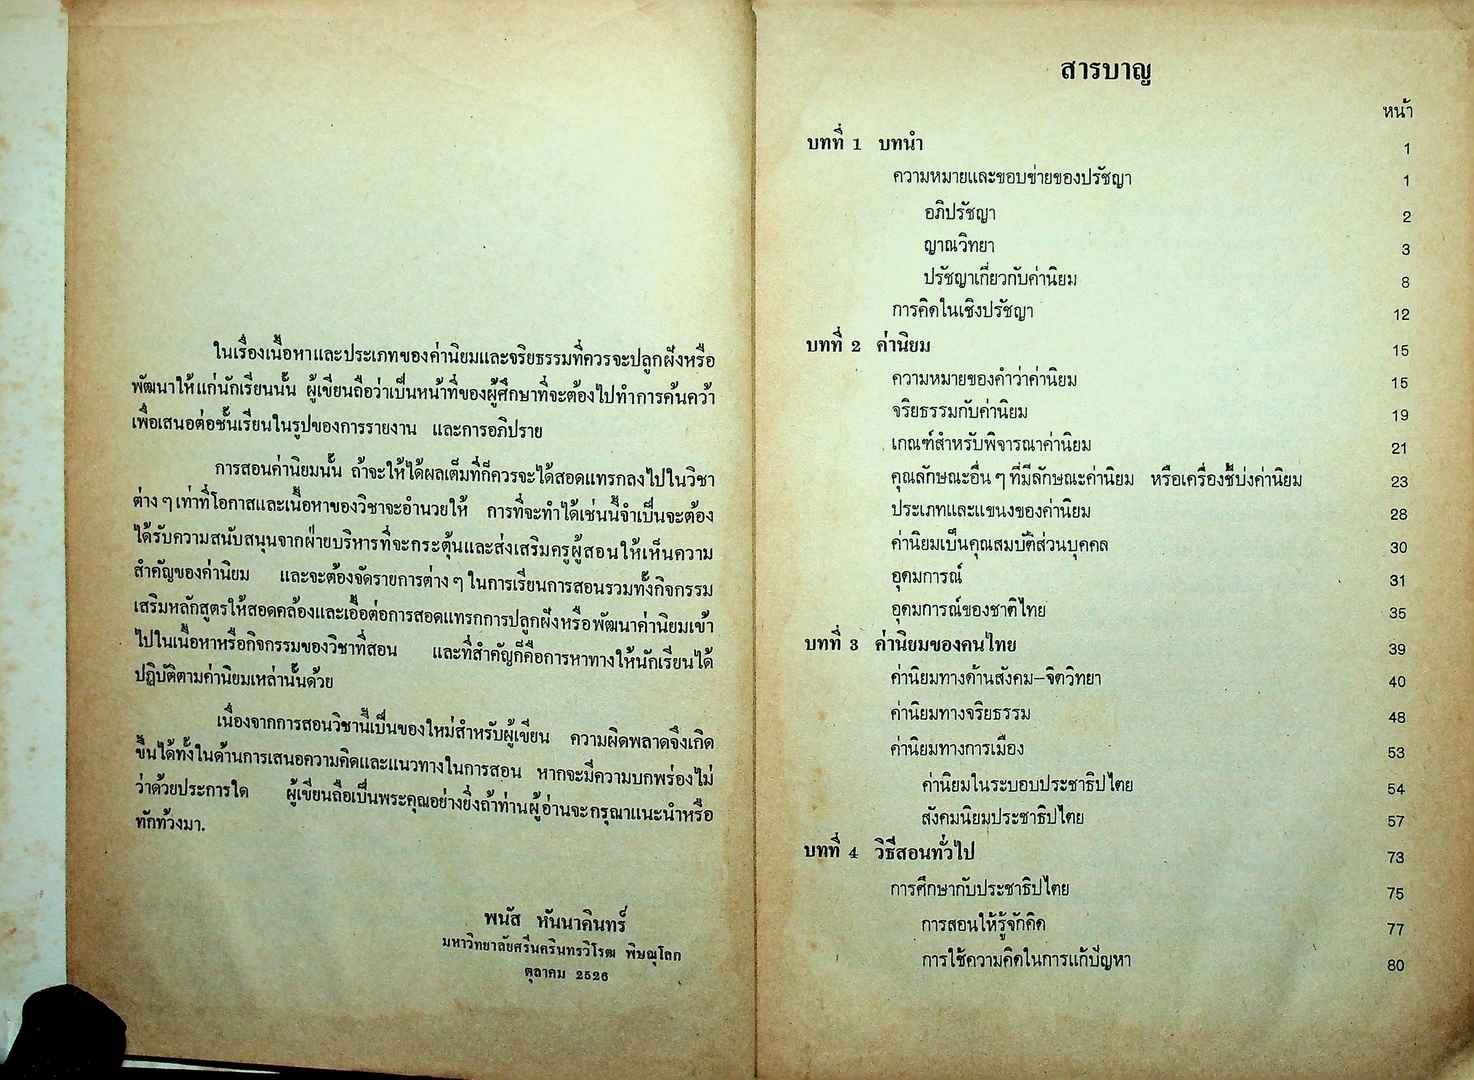 ในเรื่องเนื้อหาและประเภทของค่านิยมและจริยธรรมที่ควรจะปลูกฝังหรือ
พัฒนาให้แก่นักเรียนนั้น ผู้เขียนถือว่าเป็นหน้าที่ของผู้ศึกษาที่จะต้องไปทำการค้นคว้า
เพื่อเสนอต่อชั้นเรียนในรูปของการรายงาน และการอภิปราย
การสอนค่านิยมนั้น ถ้าจะให้ได้ผลเต็มที่ก็ควรจะได้สอดแทรกลงไปในวิชา
ต่าง ๆ เท่าที่โอกาสและเนื้อหาของวิชาจะอำนวยให้ การที่จะทำได้เช่นนี้จำเป็นจะต้อง
ได้รับความสนับสนุนจากฝ่ายบริหารที่จะกระตุ้นและส่งเสริมครูผู้สอนให้เห็นความ
สำคัญของค่านิยม และจะต้องจัดรายการต่าง ๆ ในการเรียนการสอนรวมทั้งกิจกรรม
เสริมหลักสูตรให้สอดคล้องและเอื้อต่อการสอดแทรกการปลูกฝังหรือพัฒนาค่านิยมเข้า
ไปในเนื้อหาหรือกิจกรรมของวิชาที่สอน และที่สำคัญก็คือการหาทางให้นักเรียนได้
ปฏิบัติตามค่านิยมเหล่านั้นด้วย
เนื่องจากการสอนวิชานี้เป็นของใหม่สำหรับผู้เขียน ความผิดพลาดจึงเกิด
ขึ้นได้ทั้งในด้านการเสนอความคิดและแนวทางในการสอน หากจะมีความบกพร่องไม่
ว่าด้วยประการใด ผู้เขียนถือเป็นพระคุณอย่างยิ่งถ้าท่านผู้อ่านจะกรุณาแนะนำหรือ
ทักท้วงมา.
พนัส หันนาคินทร์
มหาวิทยาลัยศรีนครินทรวิโรฒ พิษณุโลก
ตุลาคม 2526
สารบาญ
หน้า
บทที่ 1 บทนำ 1
ความหมายและขอบข่ายของปรัชญา 1
อภิปรัชญา 2
ญาณวิทยา 3
ปรัชญาเกี่ยวกับค่านิยม 8
การคิดในเชิงปรัชญา 12
บทที่ 2 ค่านิยม 15
ความหมายของคำว่าค่านิยม 15
จริยธรรมกับค่านิยม 19
เกณฑ์สำหรับพิจารณาค่านิยม 21
คุณลักษณะอื่น ๆ ที่มีลักษณะค่านิยม หรือเครื่องชี้บ่งค่านิยม 23
ประเภทและแขนงของค่านิยม 28
ค่านิยมเป็นคุณสมบัติส่วนบุคคล 30
อุดมการณ์ 31
อุดมการณ์ของชาติไทย 35
บทที่ 3 ค่านิยมของคนไทย 39
ค่านิยมทางด้านสังคม–จิตวิทยา 40
ค่านิยมทางจริยธรรม 48
ค่านิยมทางการเมือง 53
ค่านิยมในระบอบประชาธิปไตย 54
สังคมนิยมประชาธิปไตย 57
บทที่ 4 วิธีสอนทั่วไป 73
การศึกษากับประชาธิปไตย 75
การสอนให้รู้จักคิด 77
การใช้ความคิดในการแก้ปัญหา 80